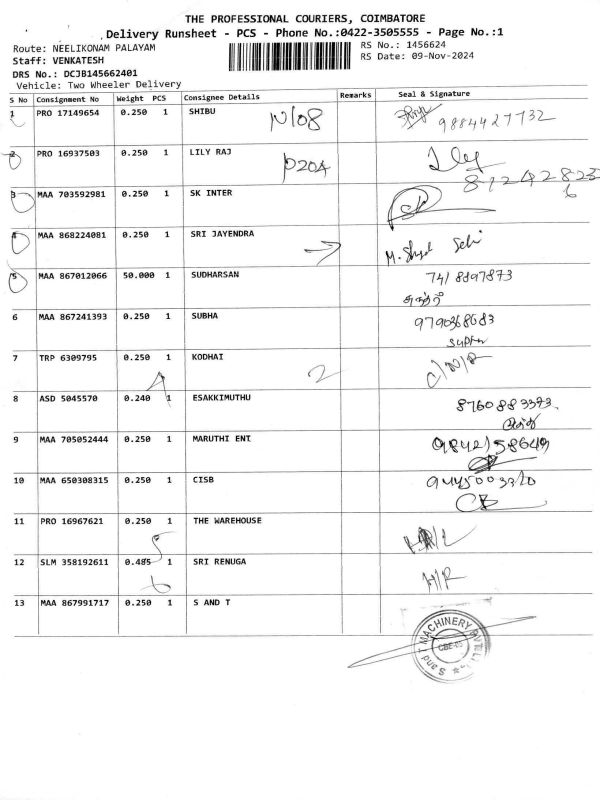 THE PROFESSIONAL COURIERS, COIMBATORE
Delivery Runsheet - PCS - Phone No.:0422-3505555 - Page No.:1
Route: NEELIKONAM PALAYAM RS No.: 1456624
Staff: VENKATESH RS Date: 09-Nov-2024
DRS No.: DCJB145662401
Vehicle: Two Wheeler Delivery
S No Consignment No Weight PCS Consignee Details Remarks Seal & Signature
1 PRO 17149654 0.250 1 SHIBU N/08 9884427732
2 PRO 16937503 0.250 1 LILY RAJ P204 Lily
3 MAA 703592981 0.250 1 SK INTER
4 MAA 868224081 0.250 1 SRI JAYENDRA
5 MAA 867012066 50.000 1 SUDHARSAN 7418897873
6 MAA 867241393 0.250 1 SUBHA 9790368683
7 TRP 6309795 0.250 1 KODHAI 2
8 ASD 5045570 0.240 1 ESAKKIMUTHU 8760883393
9 MAA 705052444 0.250 1 MARUTHI ENT 9842158649
10 MAA 650308315 0.250 1 CISB
11 PRO 16967621 0.250 1 THE WAREHOUSE
12 SLM 358192611 0.485 1 SRI RENUGA H/R
13 MAA 867991717 0.250 1 S AND T
S and T MACHINERY